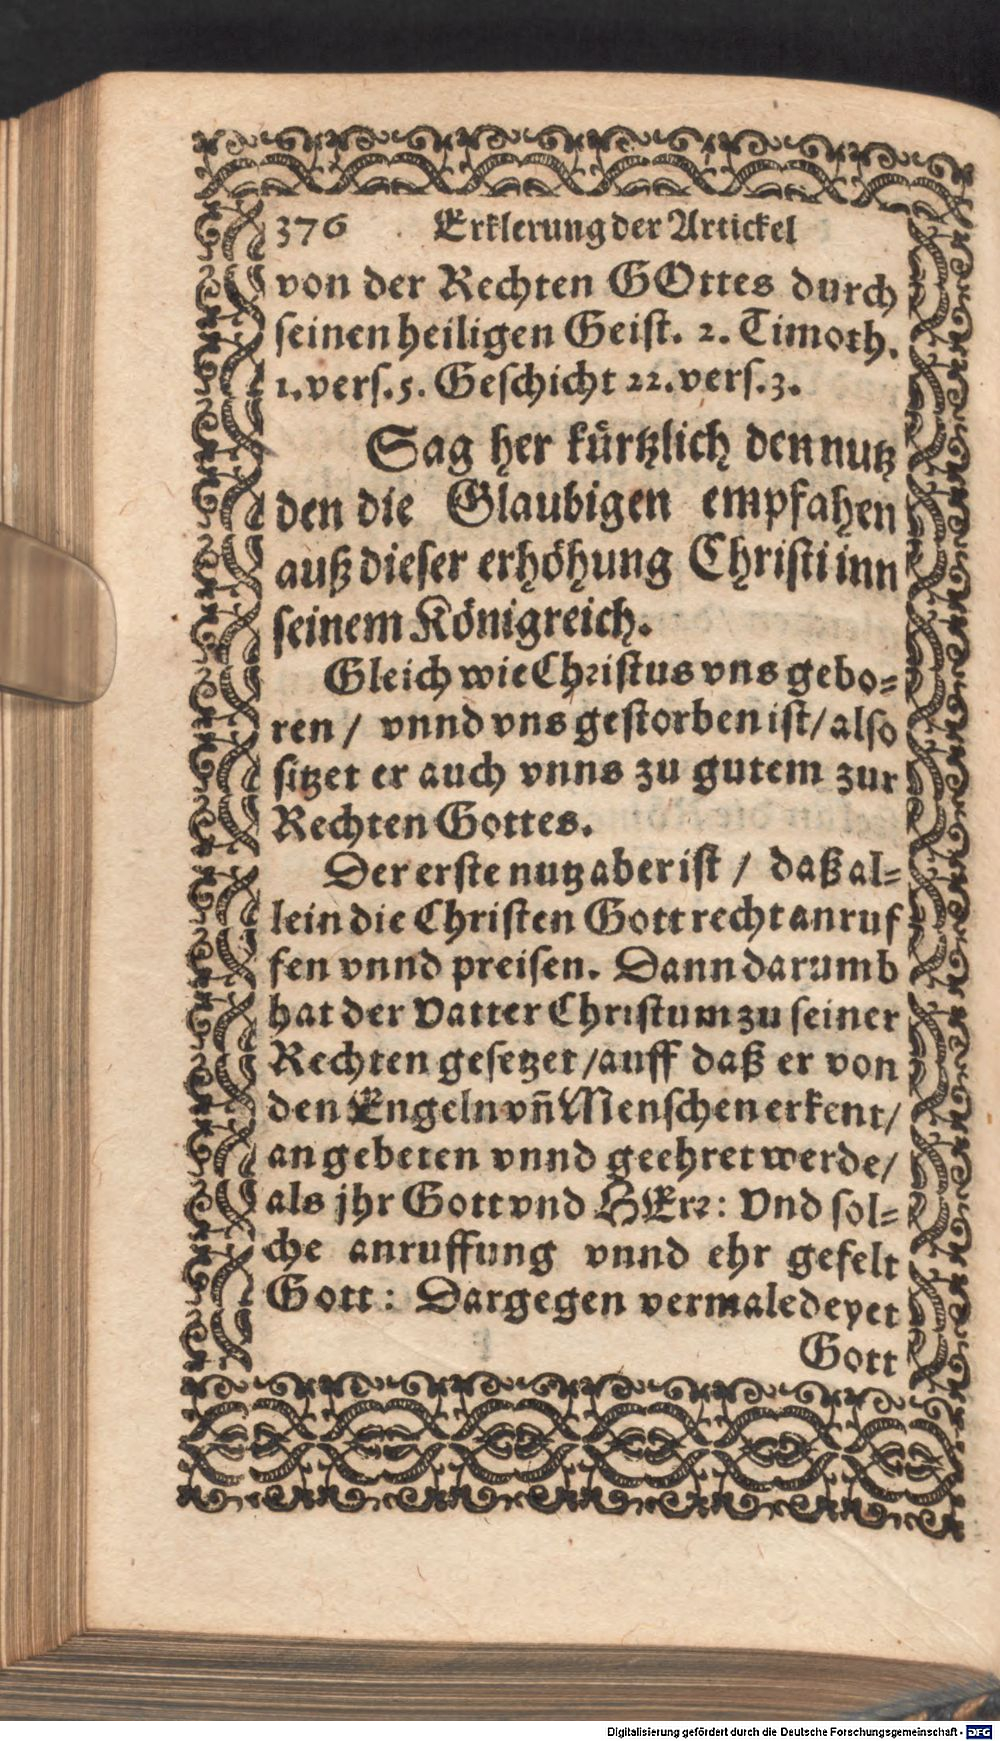 376 Erklerung der Artickel
von der Rechten GOttes durch
seinen heiligen Geist. 2. Timoth.
1. vers. 5. Geschicht 22. vers. 3.
Sag her kürtzlich den nutz
den die Glaubigen empfahen
auß dieser erhöhung Christi inn
seinem Königreich.
Gleich wie Christus vns gebo=
ren / vnnd vns gestorben ist / also
sitzet er auch vnns zu gutem zur
Rechten Gottes.
Der erste nutz aber ist / daß al=
lein die Christen Gott recht anruf
fen vnnd preisen. Dann darumb
hat der Vatter Christum zu seiner
Rechten gesetzet / auff daß er von
den Engeln vn̄ Menschen erkent /
angebeten vnnd geehret werde /
als jhr Gott vnd HErr: Vnd sol=
che anruffung vnnd ehr gefelt
Gott: Dargegen vermaledeyet
Gott
Digitalisierung gefördert durch die Deutsche Forschungsgemeinschaft - DFG